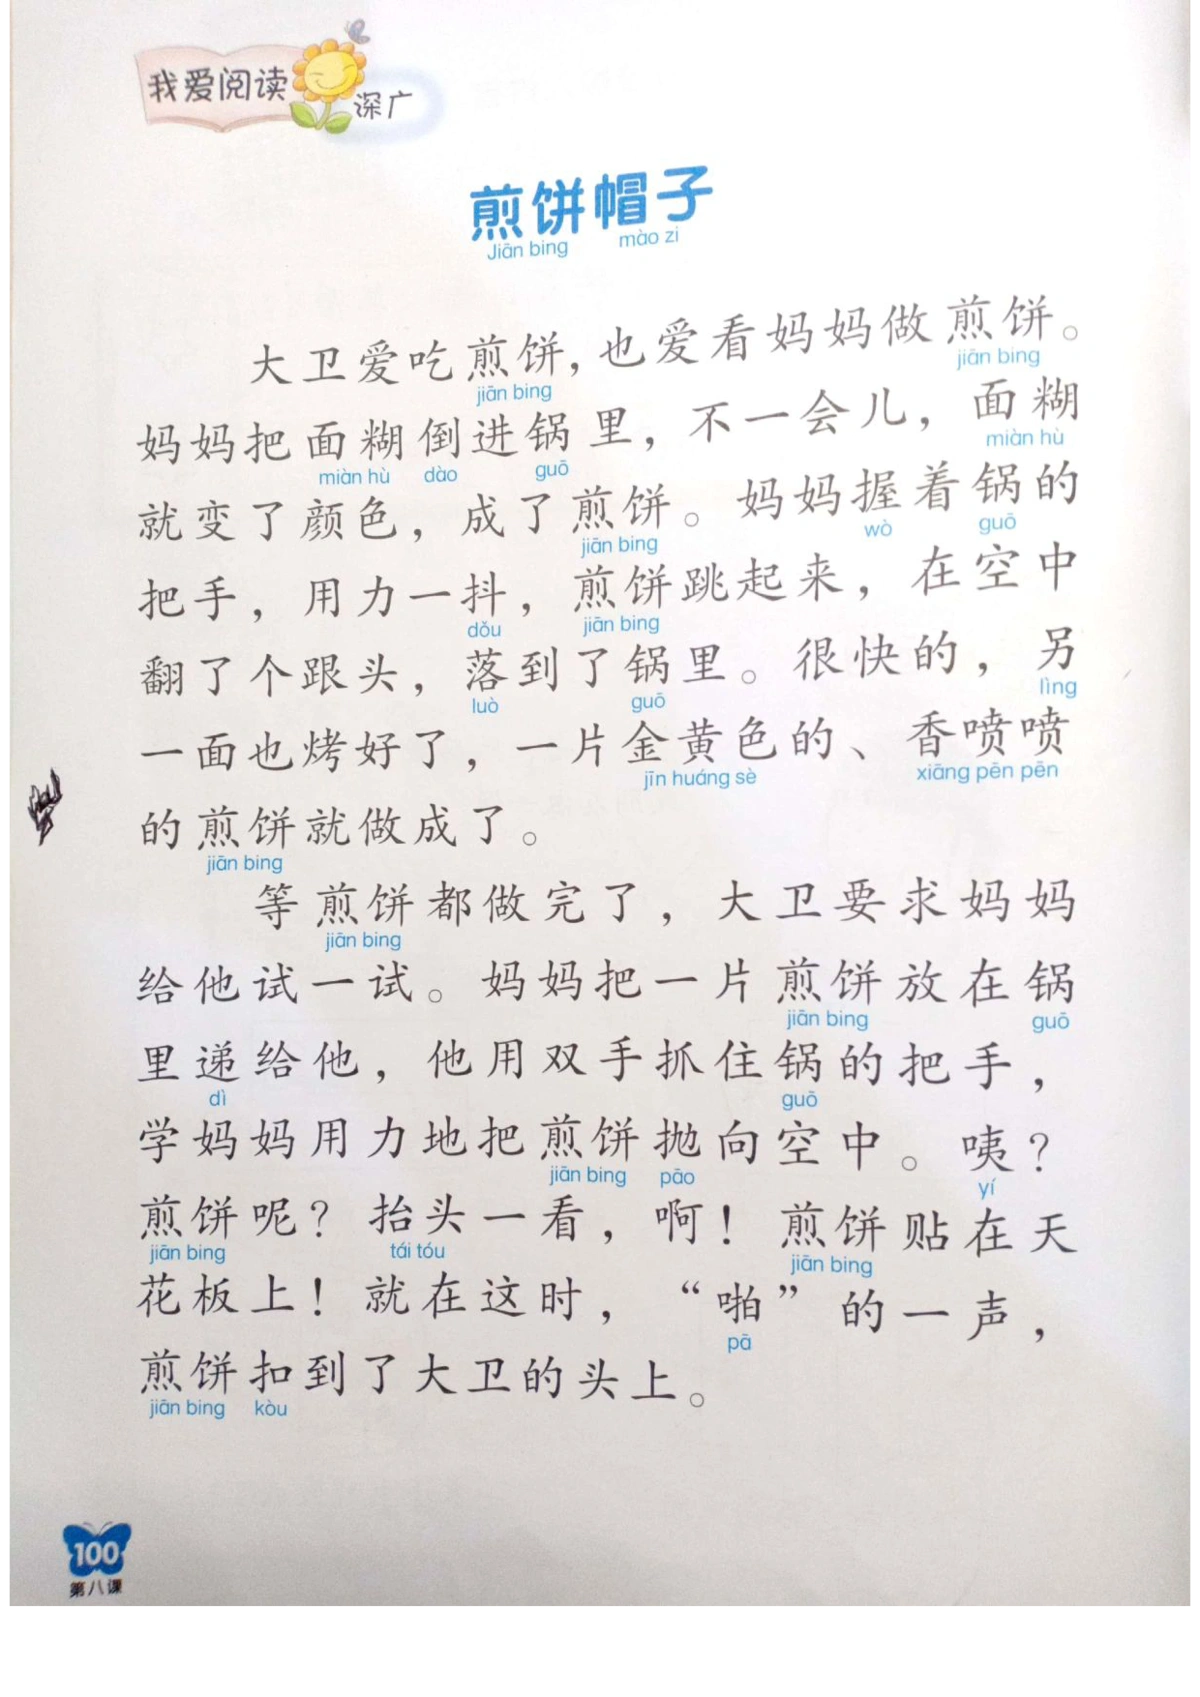 我爱阅读
深广
煎饼帽子
Jiān bing mào zi
大卫爱吃煎饼，也爱看妈妈做煎饼。
jiān bing jiān bing
妈妈把面糊倒进锅里，不一会儿，面糊
miàn hù dào guō miàn hù
就变了颜色，成了煎饼。妈妈握着锅的
jiān bing wò guō
把手，用力一抖，煎饼跳起来，在空中
dǒu jiān bing
翻了个跟头，落到了锅里。很快的，另
luò guō lìng
一面也烤好了，一片金黄色的、香喷喷
jīn huáng sè xiāng pēn pēn
的煎饼就做成了。
jiān bing
等煎饼都做完了，大卫要求妈妈
jiān bing
给他试一试。妈妈把一片煎饼放在锅
jiān bing guō
里递给他，他用双手抓住锅的把手，
dì guō
学妈妈用力地把煎饼抛向空中。咦？
jiān bing pāo yí
煎饼呢？抬头一看，啊！煎饼贴在天
jiān bing tái tóu jiān bing
花板上！就在这时，“啪”的一声，
pā
煎饼扣到了大卫的头上。
jiān bing kòu
100
第八课